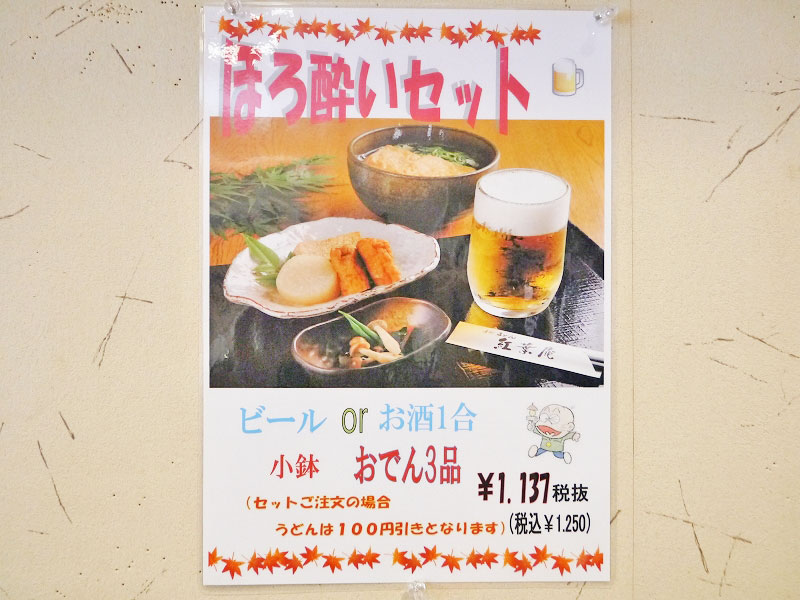 ほろ酔いセット
紅葉庵
ビール or お酒1合
小鉢 おでん3品
¥1,137税抜
(税込¥1,250)
(セットご注文の場合
うどんは100円引きとなります)